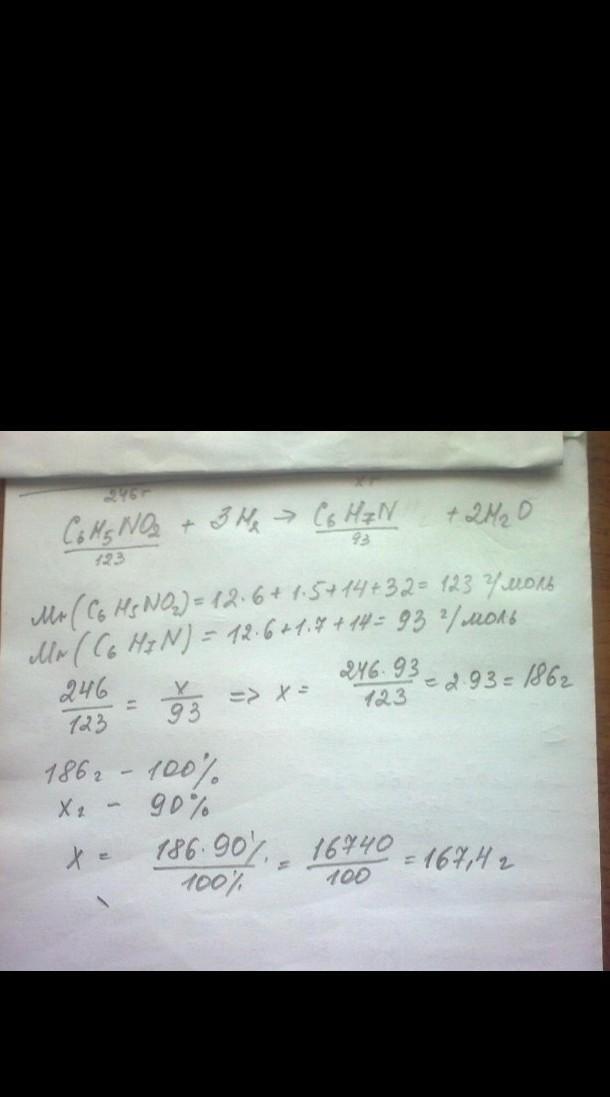 246г хг
C₆H₅NO₂ + 3H₂ → C₆H₇N + 2H₂O
123 93
Mr(C₆H₅NO₂) = 12·6 + 1·5 + 14 + 32 = 123 г/моль
Mr(C₆H₇N) = 12·6 + 1·7 + 14 = 93 г/моль
246/123 = x/93 => x = 246·93/123 = 2·93 = 186г
186г – 100%
xг – 90%
x = 186·90%/100% = 16740/100 = 167,4 г